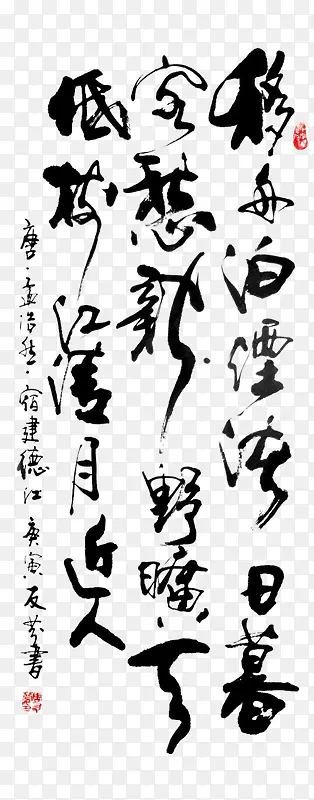 移舟泊煙渚日暮
客愁新野曠天
低樹江清月近人
唐·孟浩然·宿建德江庚寅反芬書